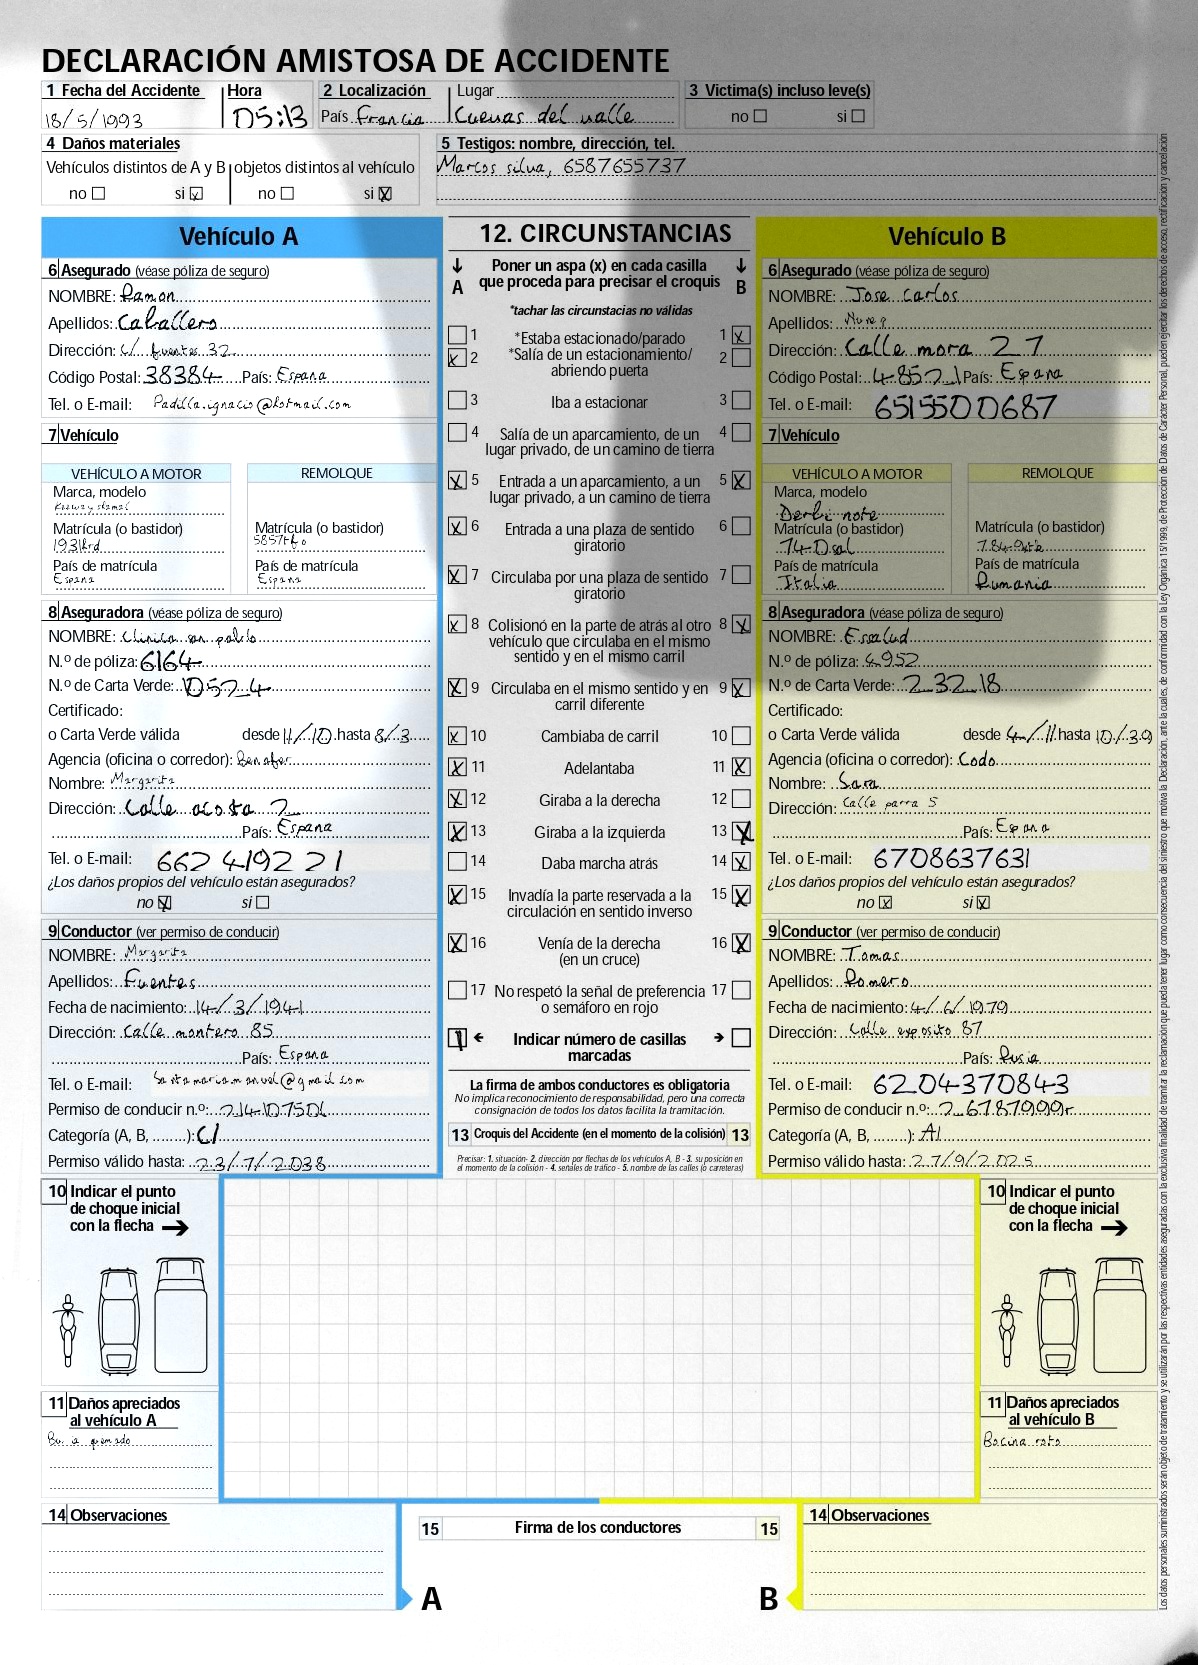 DECLARACIÓN AMISTOSA DE ACCIDENTE
1 Fecha del Accidente Hora 2 Localización Lugar 3 Victima(s) incluso leve(s)
18/5/1993 05:13 País Francia Cuevas del valle no si
4 Daños materiales 5 Testigos: nombre, dirección, tel.
Vehículos distintos de A y B objetos distintos al vehículo Marcos silva, 6587655737
no si no si X
Vehículo A 12. CIRCUNSTANCIAS Vehículo B
A Poner un aspa (x) en cada casilla que proceda para precisar el croquis B
*tachar las circunstacias no válidas
6 Asegurado (véase póliza de seguro)
NOMBRE: Ramon
Apellidos: Caballero
Dirección: c/ fuentes 32
Código Postal: 38384 País: Espana
Tel. o E-mail: Padilla.ignacio@hotmail.com
7 Vehículo
VEHÍCULO A MOTOR REMOLQUE
Marca, modelo
Matrícula (o bastidor) Matrícula (o bastidor)
1931hrd 5857tfo
País de matrícula País de matrícula
Espana Espana
8 Aseguradora (véase póliza de seguro)
NOMBRE: Clinica san pablo
N.º de póliza: 6164
N.º de Carta Verde: 10524
Certificado:
o Carta Verde válida desde 11/10 hasta 8/3
Agencia (oficina o corredor): Benafer
Nombre: Margarita
Dirección: Calle acosta 2
País: Espana
Tel. o E-mail: 662419221
¿Los daños propios del vehículo están asegurados?
no X si
9 Conductor (ver permiso de conducir)
NOMBRE: Margarita
Apellidos: Fuentes
Fecha de nacimiento: 14/3/1941
Dirección: Calle montero 85
País: Espana
Tel. o E-mail: Santamariamanuel@gmail.com
Permiso de conducir n.º: 21410750L
Categoría (A, B, ........): C1
Permiso válido hasta: 23/7/2038
1 *Estaba estacionado/parado 1 X
X 2 *Salía de un estacionamiento/ 2
abriendo puerta
3 Iba a estacionar 3
4 Salía de un aparcamiento, de un 4
lugar privado, de un camino de tierra
X 5 Entrada a un aparcamiento, a un 5 X
lugar privado, a un camino de tierra
X 6 Entrada a una plaza de sentido 6
giratorio
X 7 Circulaba por una plaza de sentido 7
giratorio
X 8 Colisionó en la parte de atrás al otro 8 X
vehículo que circulaba en el mismo
sentido y en el mismo carril
X 9 Circulaba en el mismo sentido y en 9 X
carril diferente
X 10 Cambiaba de carril 10
X 11 Adelantaba 11 X
X 12 Giraba a la derecha 12
X 13 Giraba a la izquierda 13 X
14 Daba marcha atrás 14 X
X 15 Invadía la parte reservada a la 15 X
circulación en sentido inverso
X 16 Venía de la derecha 16 X
(en un cruce)
17 No respetó la señal de preferencia 17
o semáforo en rojo
Indicar número de casillas
marcadas
La firma de ambos conductores es obligatoria
No implica reconocimiento de responsabilidad, pero una correcta
consignación de todos los datos facilita la tramitación.
13 Croquis del Accidente (en el momento de la colisión) 13
Precisar: 1. situación- 2. dirección por flechas de los vehículos A, B - 3. su posición en
el momento de la colisión - 4. señales de tráfico - 5. nombre de las calles (o carreteras)
6 Asegurado (véase póliza de seguro)
NOMBRE: Jose Carlos
Apellidos: Nunez
Dirección: Calle mora 27
Código Postal: 48521 País: Espana
Tel. o E-mail: 6515500687
7 Vehículo
VEHÍCULO A MOTOR REMOLQUE
Marca, modelo
Derbi note
Matrícula (o bastidor) Matrícula (o bastidor)
País de matrícula País de matrícula
Italia Rumania
8 Aseguradora (véase póliza de seguro)
NOMBRE: Essalud
N.º de póliza: 4952
N.º de Carta Verde: 23218
Certificado:
o Carta Verde válida desde 4/11 hasta 10/39
Agencia (oficina o corredor): Codo
Nombre: Sara
Dirección: Calle parra 5
País: Espana
Tel. o E-mail: 6708637631
¿Los daños propios del vehículo están asegurados?
no X si X
9 Conductor (ver permiso de conducir)
NOMBRE: Tomas
Apellidos: Romero
Fecha de nacimiento: 4/6/1979
Dirección: Calle exposito 87
País: Rusia
Tel. o E-mail: 6204370843
Permiso de conducir n.º: 26787999r
Categoría (A, B, ........): A1
Permiso válido hasta: 27/9/2025
10 Indicar el punto
de choque inicial
con la flecha
10 Indicar el punto
de choque inicial
con la flecha
11 Daños apreciados
al vehículo A
quemado
11 Daños apreciados
al vehículo B
Bocina rota
14 Observaciones
15 Firma de los conductores 15
14 Observaciones
A B
Los datos personales suministrados serán objeto de tratamiento y se utilizarán por las respectivas entidades aseguradas con la exclusiva finalidad de tramitar la reclamación que pueda tener lugar como consecuencia del siniestro que motiva la Declaración, ante la cuales, de conformidad con la Ley Orgánica 15/1999, de Protección de Datos de Carácter Personal, pueden ejercitar los derechos de acceso, rectificación y cancelación